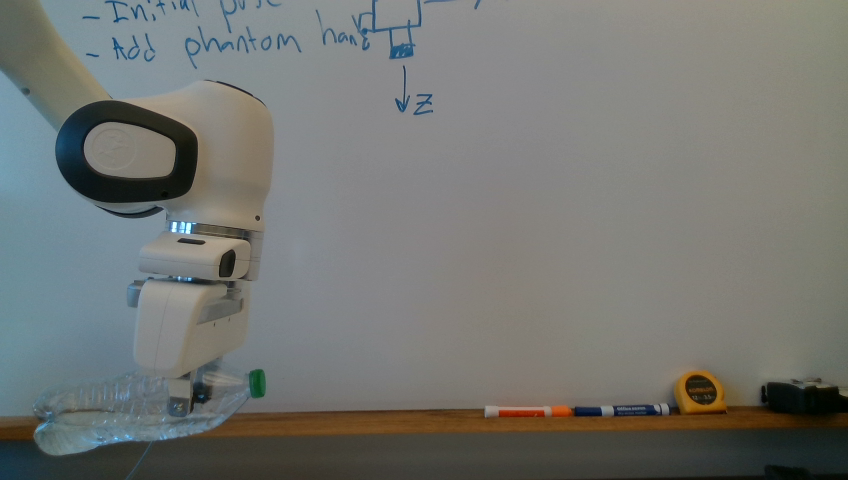 - Initial pose
- Add phantom hand
Z